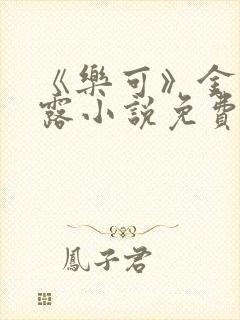 《樂可》金
露小說免費
鳳子君